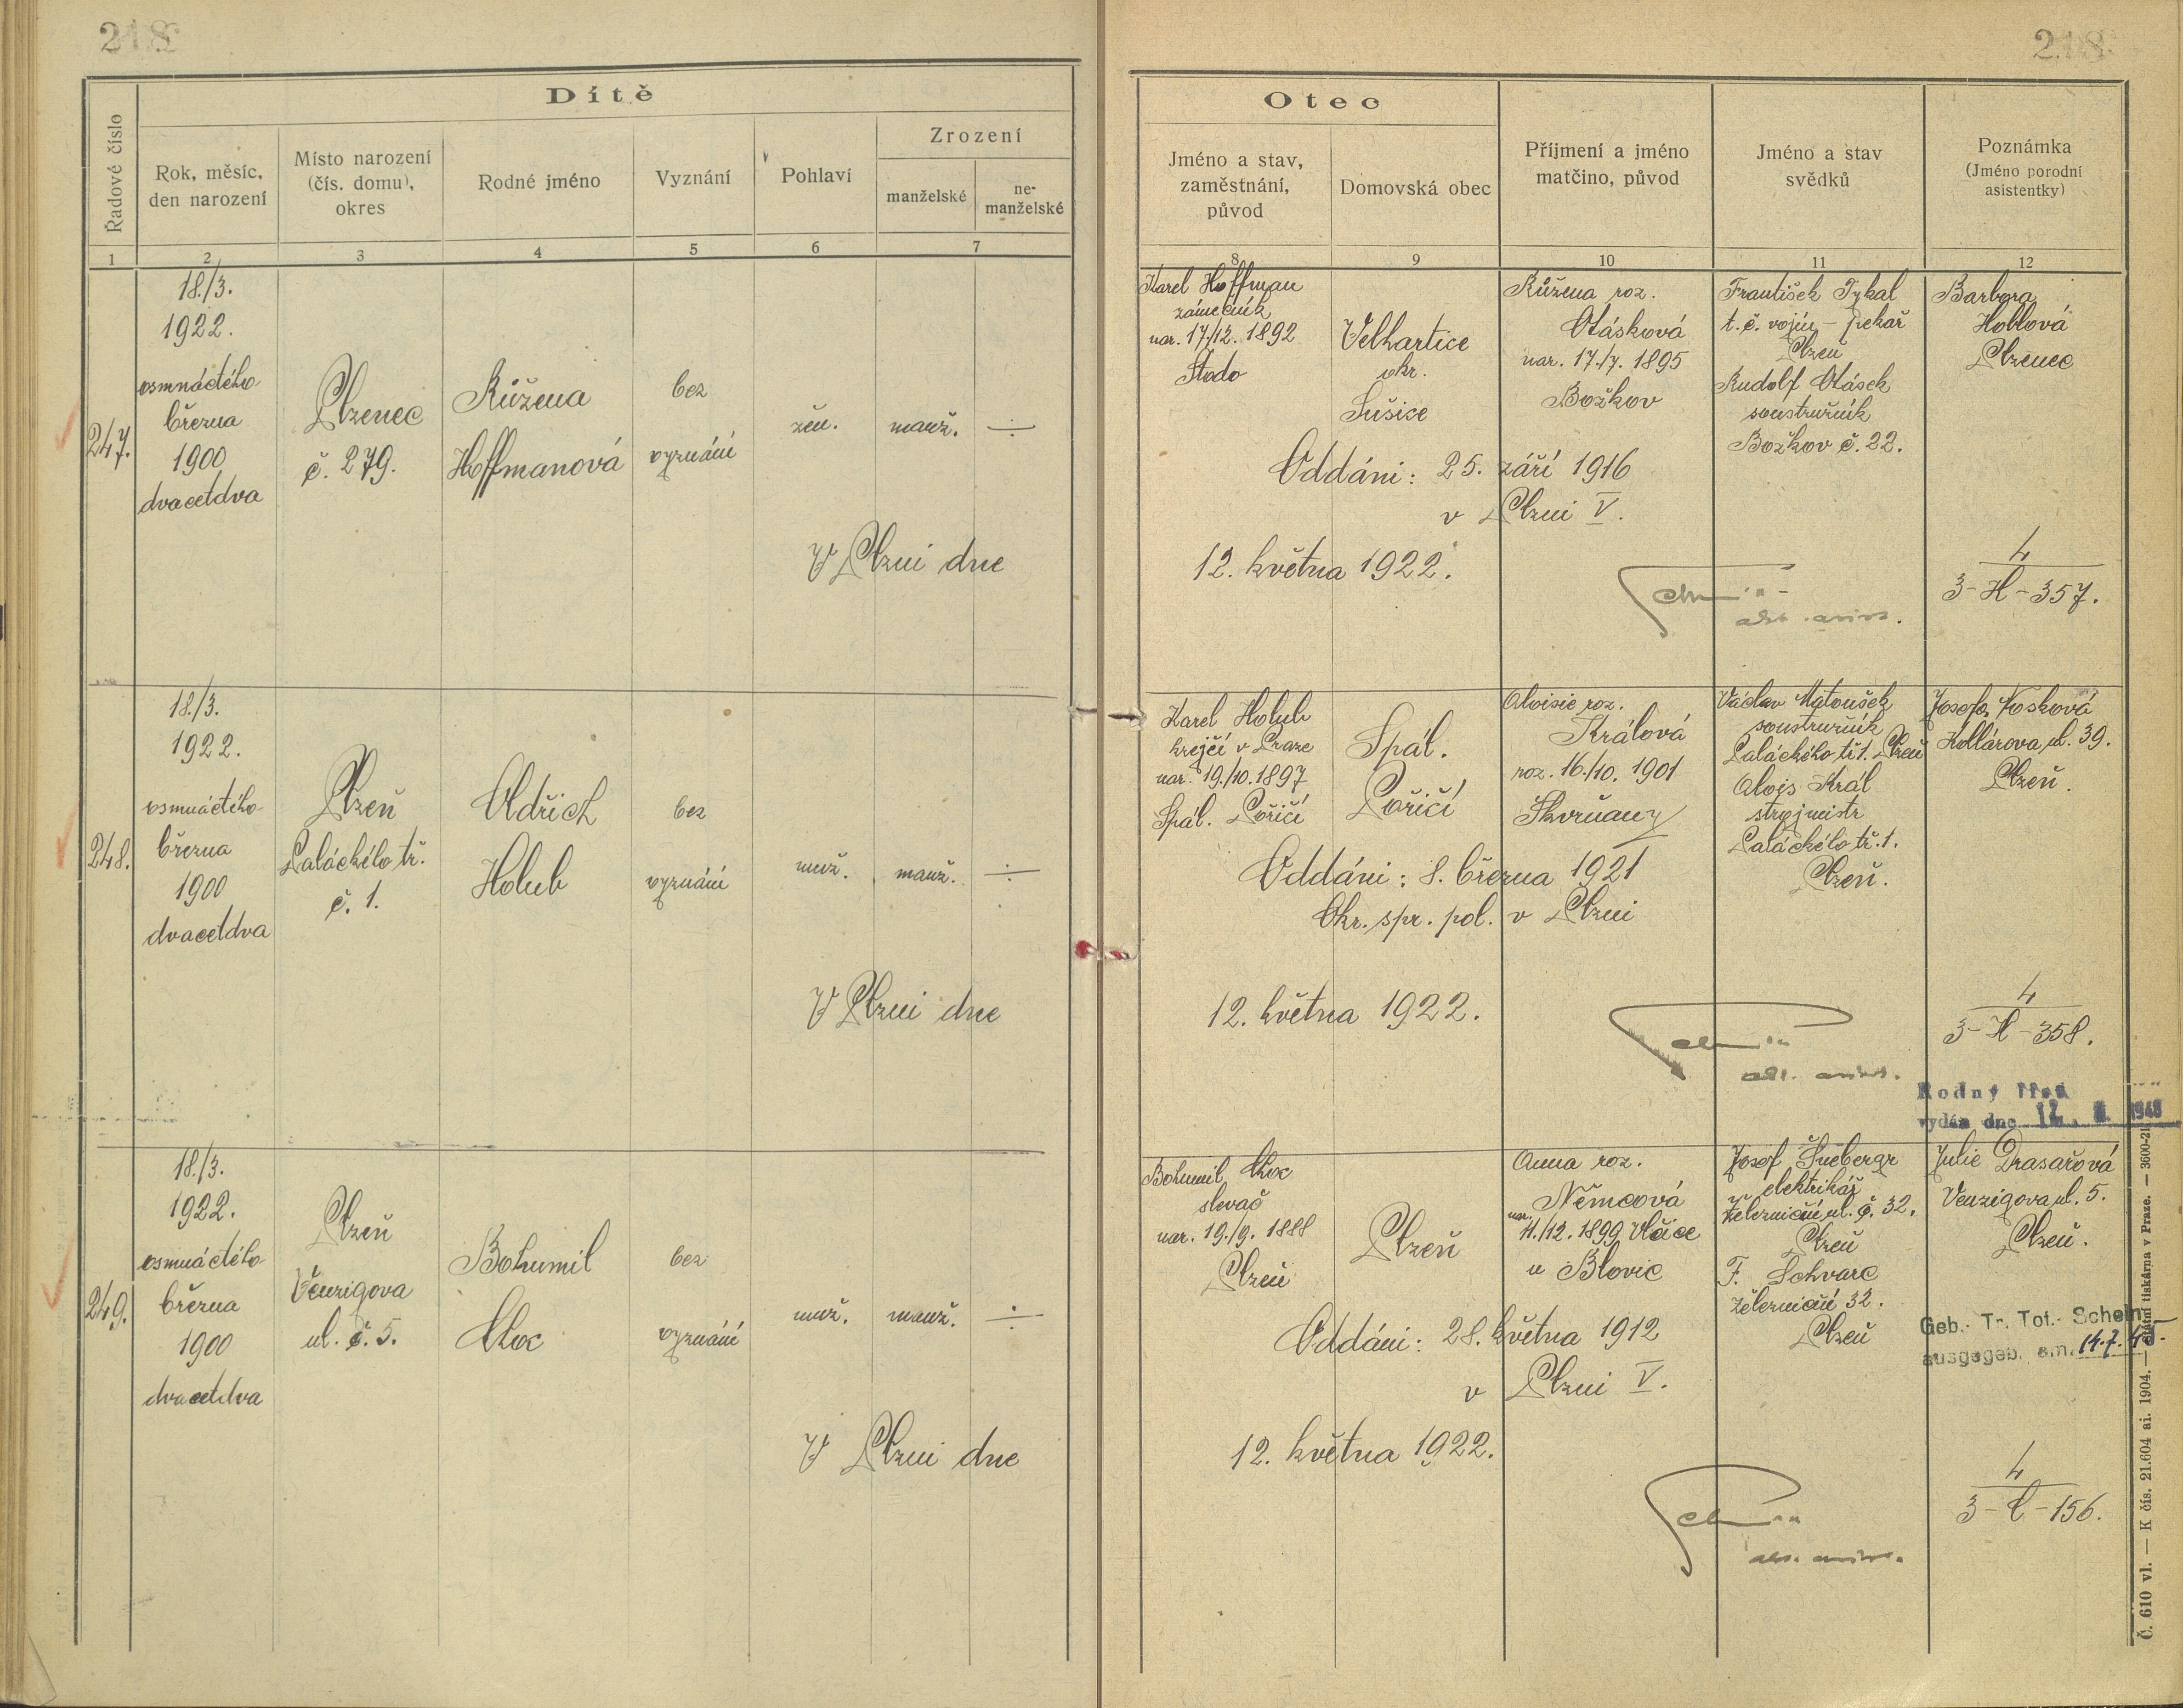 218
218
Dítě
Řadové číslo
Rok, měsíc,
den narození
Místo narození
(čís. domu),
okres
Rodné jméno
Vyznání
Pohlaví
Zrození
manželské
ne-
manželské
1 2 3 4 5 6 7
Otec
Jméno a stav,
zaměstnání,
původ
Domovská obec
Příjmení a jméno
matčino, původ
Jméno a stav
svědků
Poznámka
(Jméno porodní
asistentky)
8 9 10 11 12
247.
18./3.
1922.
osmnáctého
března
1900
dvacetdva
Plzenec
č. 279.
Růžena
Hoffmanová
bez
vyznání
žen.
manž.
V Plzni dne
Karel Hoffman
zámečník
nar. 17./12. 1892
Stodo
Velhartice
okr.
Sušice
Růžena roz.
Otásková
nar. 17./7. 1895
Božkov
František Tykal
t. č. vojín - pekař
Plzeň
Rudolf Otásek
soustružník
Božkov č. 22.
Barbora
Hoblová
Plzenec
Oddáni: 25. září 1916
v Plzni V.
12. května 1922.
4
3-H-357.
248.
18./3.
1922.
osmnáctého
března
1900
dvacetdva
Plzeň
Palackého tř.
č. 1.
Oldřich
Holub
bez
vyznání
muž.
manž.
V Plzni dne
Karel Holub
krejčí v Praze
nar. 19./10. 1897
Spál. Poříčí
Spál.
Poříčí
Aloisie roz.
Králová
roz. 16./10. 1901
Skvrňany
Václav Matoušek
soustružník
Palackého tř. 1. Plzeň
Alois Král
strojmistr
Palackého tř. 1.
Plzeň.
Josefa Vosková
Kollárova ul. 39.
Plzeň.
Oddáni: 8. března 1921
Okr. spr. pol. v Plzni
12. května 1922.
4
3-H-358.
Rodný list
vydán dne 12. 1948
249.
18./3.
1922.
osmnáctého
března
1900
dvacetdva
Plzeň
Venzigova
ul. č. 5.
Bohumil
bez
vyznání
muž.
manž.
V Plzni dne
Bohumil
slevač
nar. 19./9. 1888
Plzeň
Plzeň
Anna roz.
Němcová
nar. 11./12. 1899 Vlčice
u Blovic
Josef Šnebergr
elektrikář
železniční ul. č. 32.
Plzeň
F. Schvarc
železniční 32.
Plzeň
Julie Drasařová
Venzigova ul. 5.
Plzeň.
Oddáni: 28. května 1912
v Plzni V.
Geb.- Tr. Tot.- Schein
ausgegeb. am. 14.7.
12. května 1922.
4
156.
Č. 610 vl. — K čís. 21.604 ai. 1904. — Státní tiskárna v Praze. — 3600-21